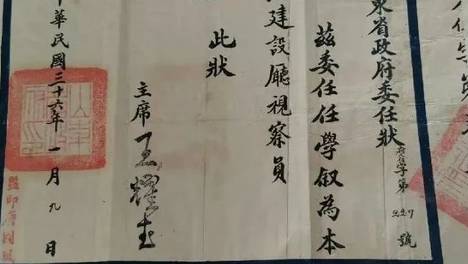 東省政府委任狀
字第227號
茲委任任學叙為本
建設廳視察員
此狀
主席
中華民國三十六年一月九日